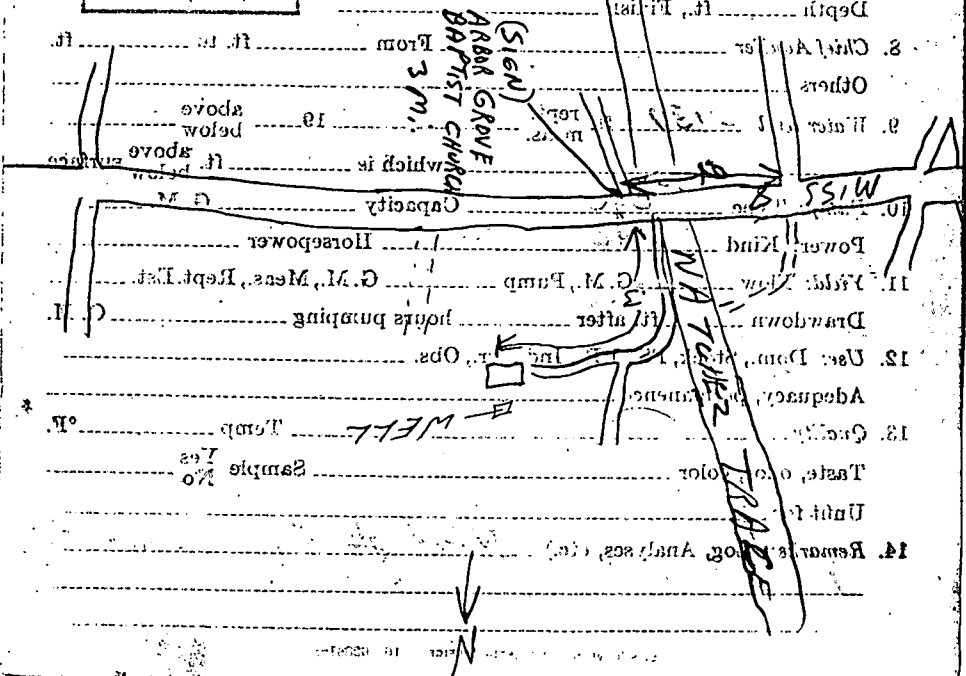 Depth ft., Finish
8. Chief Aquifer From ft. to ft.
Others
9. Water level rept. meas. 19 above below
which is ft. above below surface
10. Capacity G. M.
Power: Kind Horsepower
11. Yield: Flow G. M., Pump G. M., Meas., Rept. Est.
Drawdown ft. after hours pumping G. M.
12. Use: Dom., Stock, Ind., Obs.
Adequacy, permanence
13. Quality Temp °F.
Taste, odor, color Sample Yes No
Unfit for
14. Remarks: (Log, Analyses, etc.)
(SIGN)
ARBOR GROVE
BAPTIST CHURCH
3 m.
MISS 8
.2
.3
NATCHEZ TRACE
WELL
N